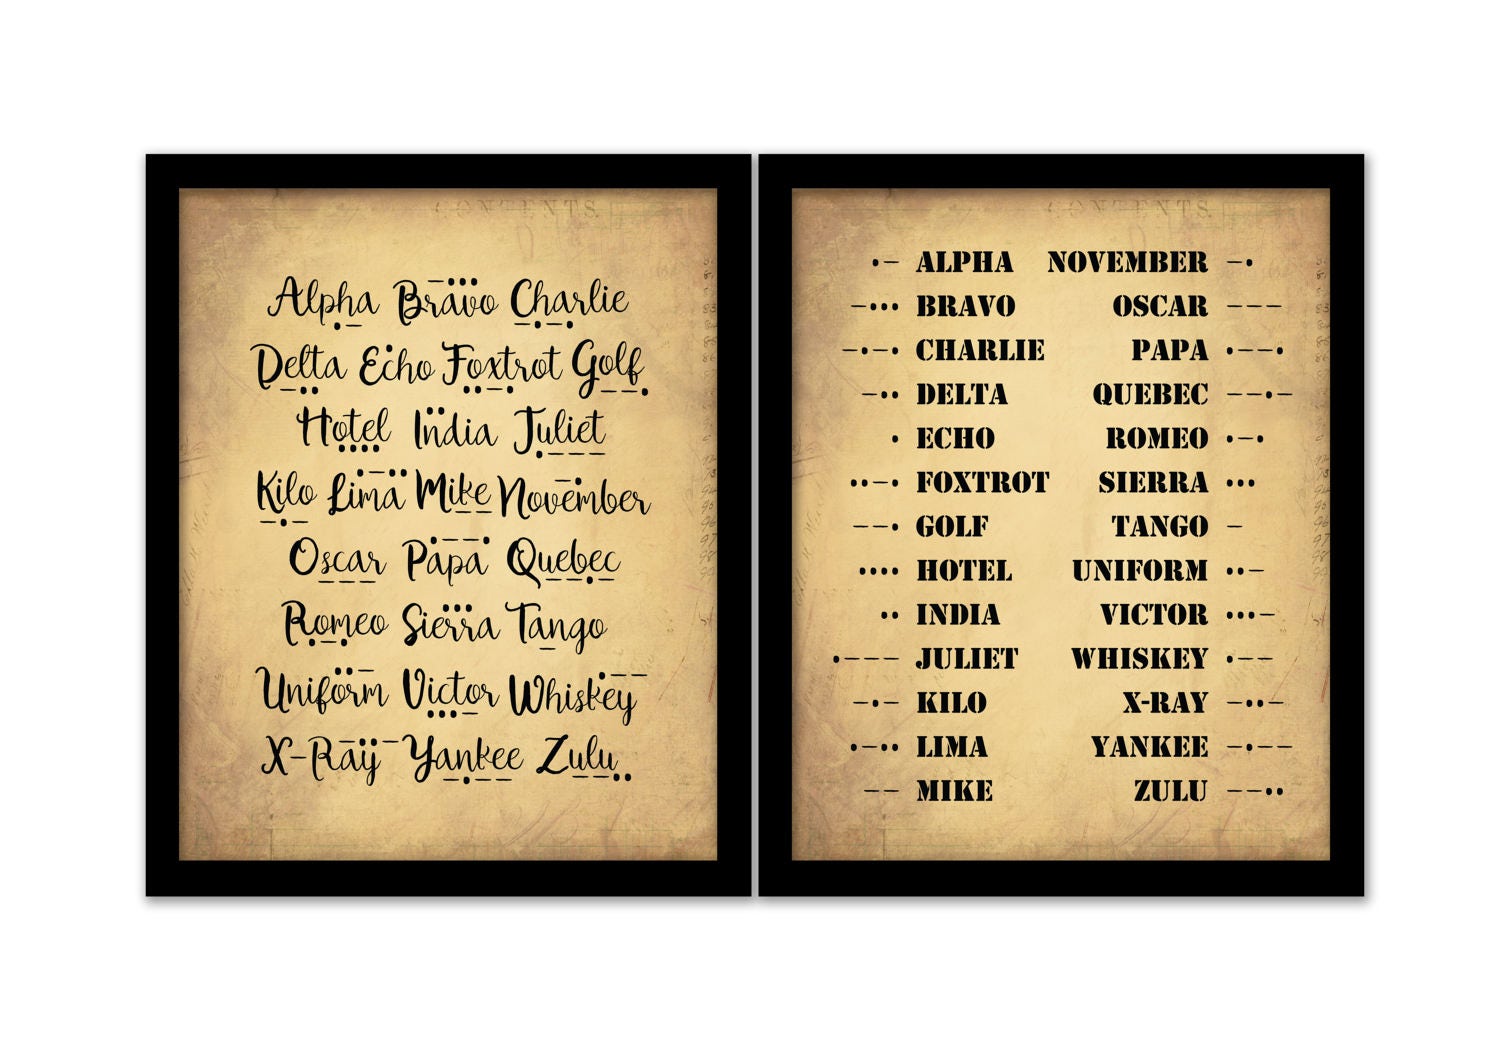 CONTENTS.
Alpha Bravo Charlie
Delta Echo Foxtrot Golf
Hotel India Juliet
Kilo Lima Mike November
Oscar Papa Quebec
Romeo Sierra Tango
Uniform Victor Whiskey
X-Ray Yankee Zulu
CONTENTS.
•– ALPHA NOVEMBER –•
–••• BRAVO OSCAR –––
–•–• CHARLIE PAPA •––•
–•• DELTA QUEBEC ––•–
• ECHO ROMEO •–•
••–• FOXTROT SIERRA •••
––• GOLF TANGO –
•••• HOTEL UNIFORM ••–
•• INDIA VICTOR •••–
•––– JULIET WHISKEY •––
–•– KILO X-RAY –••–
•–•• LIMA YANKEE –•––
–– MIKE ZULU ––••